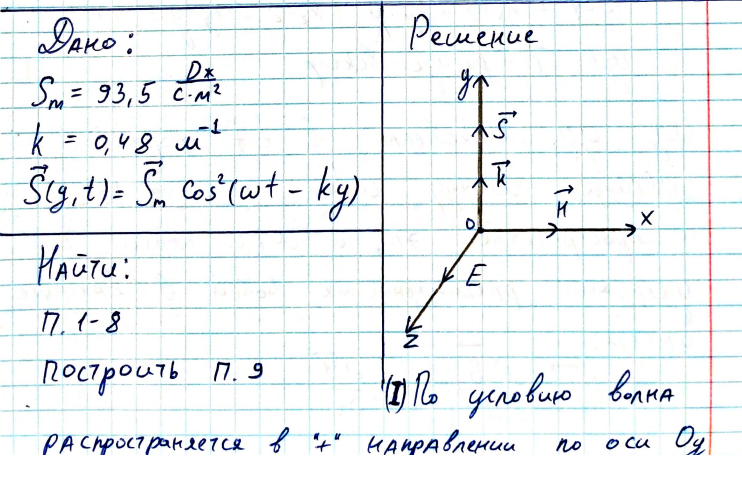 Дано:
Sm = 93,5 Дж/с·м²
k = 0,48 м⁻¹
S⃗(y,t) = S⃗m cos²(ωt − ky)
Найти:
П. 1-8
построить П. 9
Решение
y
S⃗
k⃗
H⃗
0
x
E
z
(I) По условию волна
распространяется в "+" направлении по оси Oy